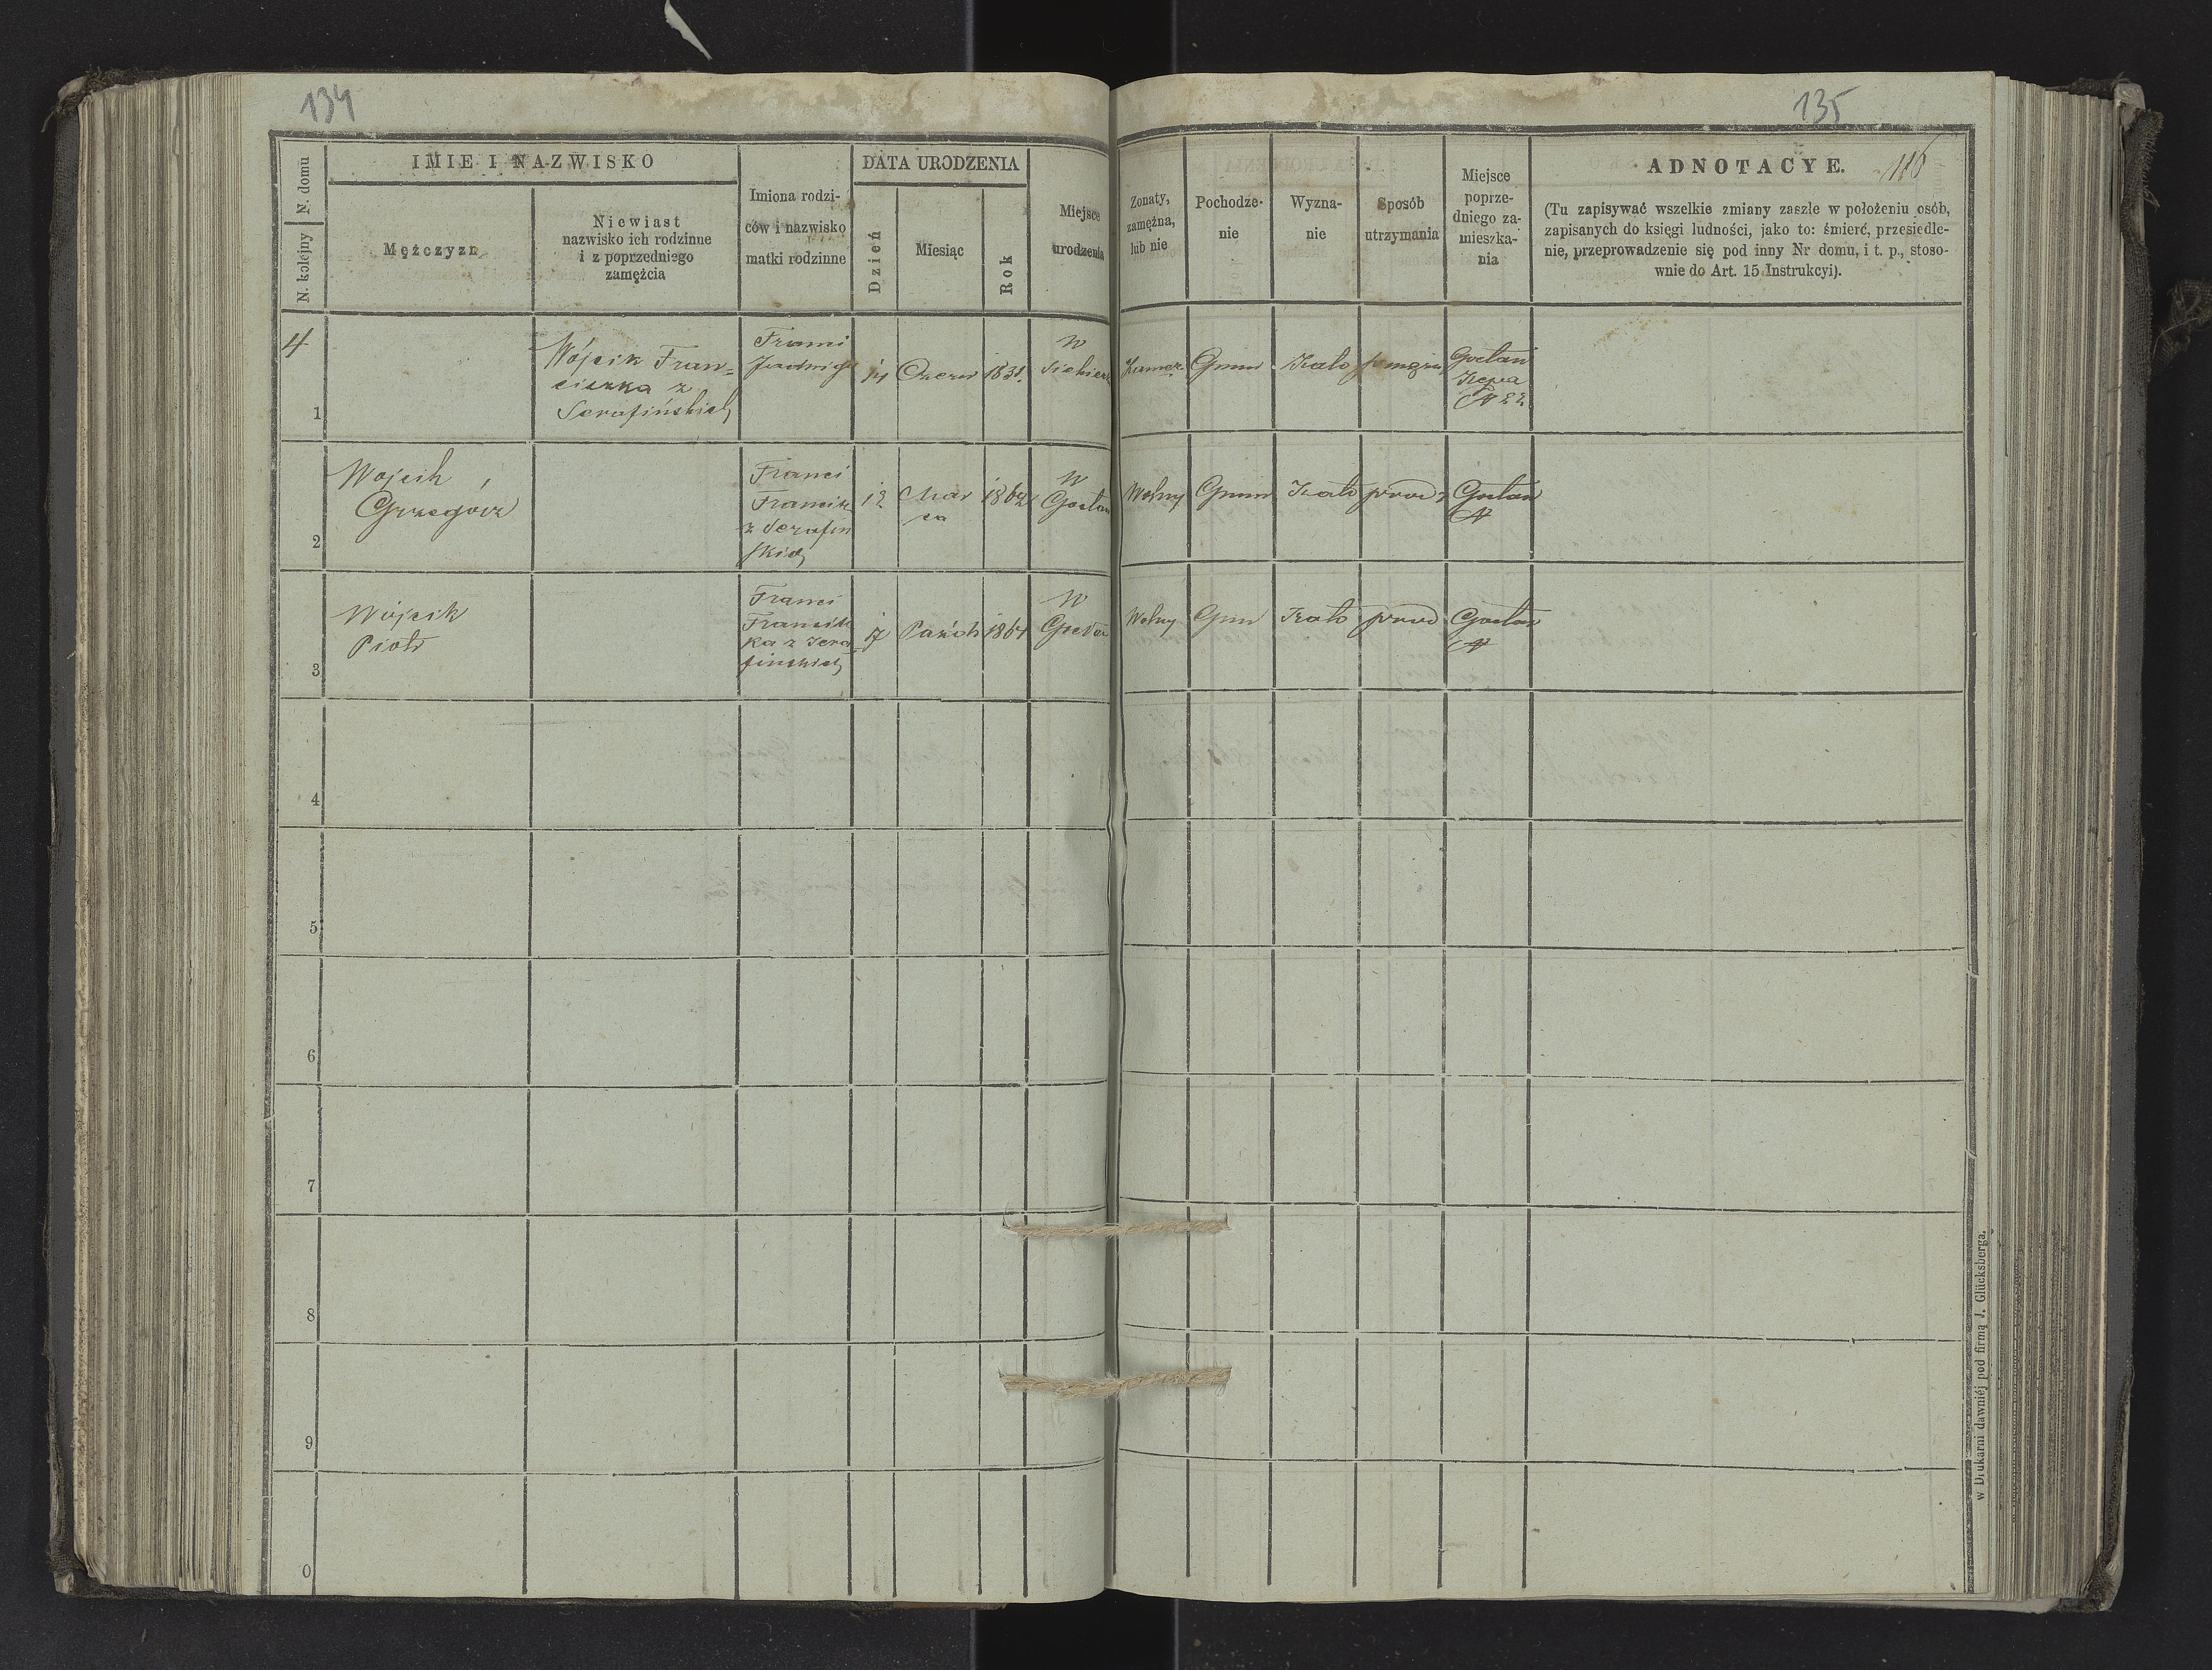 134
135
116
N. domu
N. kolejny
IMIE I NAZWISKO
Mężczyzn
Niewiast
nazwisko ich rodzinne
i z poprzedniego
zamężcia
Imiona rodzi-
ców i nazwisko
matki rodzinne
DATA URODZENIA
Dzień
Miesiąc
Rok
Miejsce
urodzenia
Żonaty,
zamężna,
lub nie
Pochodze-
nie
Wyzna-
nie
Sposób
utrzymania
Miejsce
poprze-
dniego za-
mieszka-
nia
ADNOTACYE.
(Tu zapisywać wszelkie zmiany zaszłe w położeniu osób,
zapisanych do księgi ludności, jako to: śmierć, przesiedle-
nie, przeprowadzenie się pod inny Nr domu, i t. p., stoso-
wnie do Art. 15 Instrukcyi).
4
1
Wójcik Fran=
ciszka z
Serafińskich
Franci
14
Czerw
1831.
W
Gmin
Kato
Gocław
Kępa
N 22
2
Wójcik
Grzegórz
Franci
Francisk
z Serafin
skich
12
Mar
ca
1862
W
Gocław
Wolny
Gmin
Kato
Gocław
N
3
Wójcik
Piotr
Franci
Francisz
ka z Sera
fińskich
17
Paźdź
1864
W
Wolny
Gmin
Kato
Gocław
N
4
5
6
7
8
9
0
w Drukarni dawniéj pod firmą J. Glücksberga.